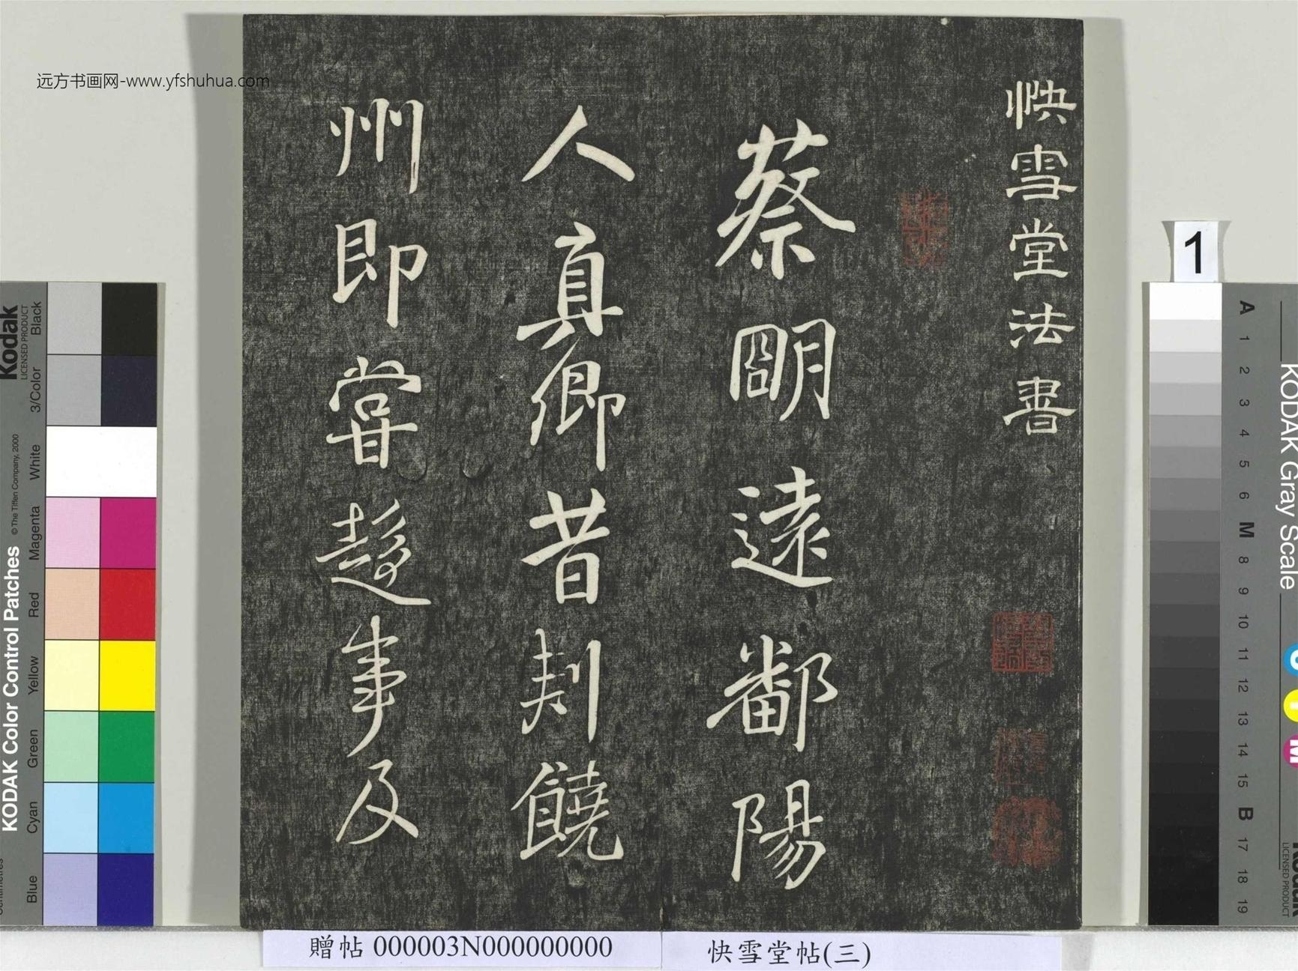 远方书画网-www.yfshuhua.com
快雪堂法書
蔡明遠鄱陽
人真卿昔刺饒
州即嘗趨事及
1
Kodak
LICENSED PRODUCT
KODAK Color Control Patches
© The Tiffen Company, 2000
Black
3/Color
White
Magenta
Red
Yellow
Green
Cyan
Blue
KODAK Gray Scale
A
1
2
3
4
5
6
M
8
9
10
11
12
13
14
15
B
17
18
19
C
Y
M
贈帖 000003N000000000
快雪堂帖(三)